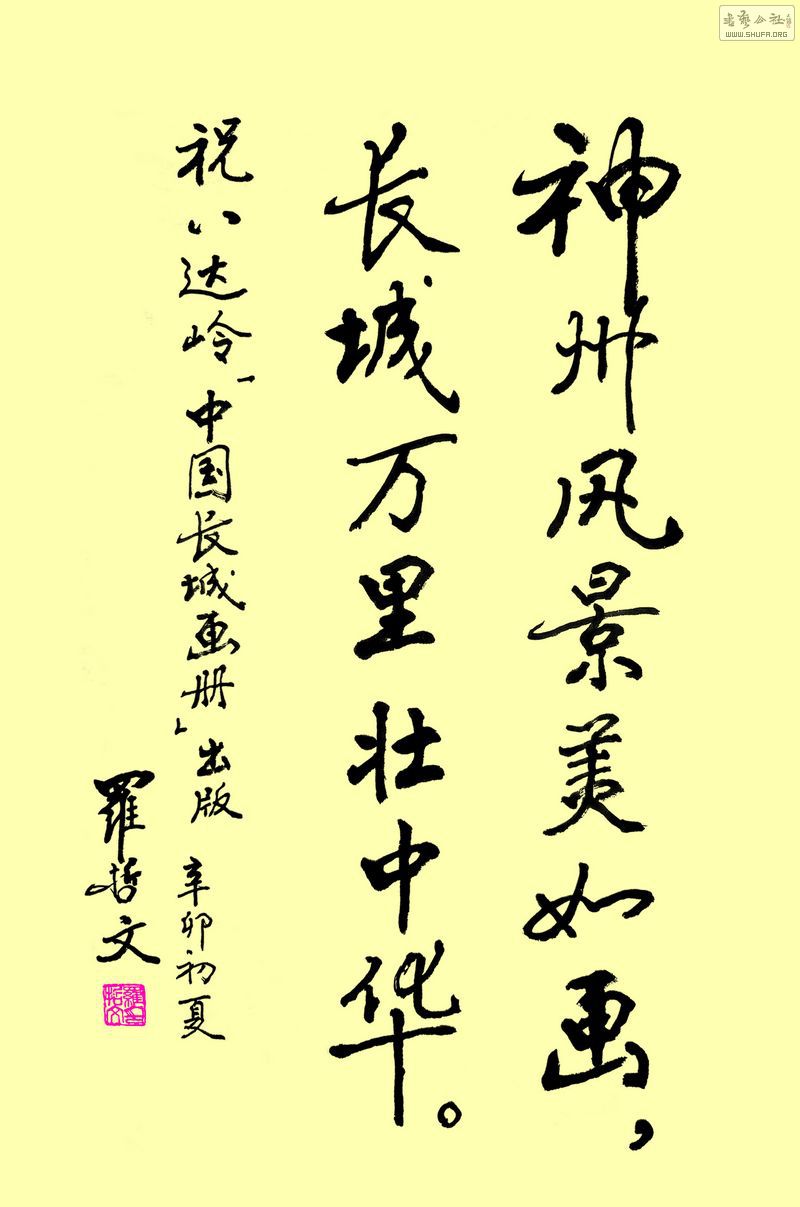 神州风景美如画，
长城万里壮中华。
祝八达岭「中国长城画册」出版 辛卯初夏
羅哲文
羅哲文
書藝公社
WWW.SHUFA.ORG